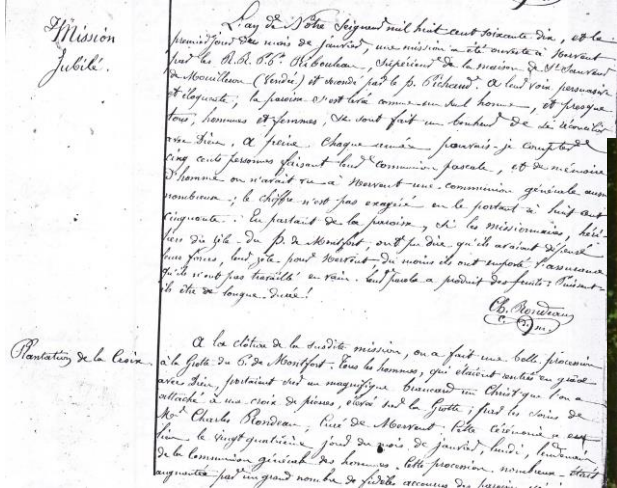 Mission
Jubilé.
L'an de Notre Seigneur mil huit cent soixante dix, et le
premier jour du mois de janvier, une mission a été ouverte à Mervent
par les R.R. P.P. Riboulleau, Supérieur de la maison de St Sauveur
de Mouilleron (Vendée) et secondé par le p. Pichaud. A leur voix persuasive
et éloquente, la paroisse s'est levée comme un seul homme, et presque
tous, hommes et femmes, se sont fait un bonheur de se réconcilier
avec Dieu. A peine chaque année pouvais-je compter
cinq cents personnes faisant leur communion pascale, et de mémoire
d'homme on n'avait vu à Mervent une communion générale aussi
nombreuse; le chiffre n'est pas exagéré en le portant à huit cent
cinquante. En partant de la paroisse, si les missionnaires, héri-
tiers du zèle du P. de Montfort, ont pu dire, qu'ils avaient dépensé
leurs forces, leur zèle pour Mervent du moins ils ont emporté l'assurance
qu'ils n'ont pas travaillé en vain. Leur parole a produit des fruits. Puissent-
ils être de longue durée!
Ch. Rondeau
Plantation de la Croix.
A la clôture de la susdite mission, on a fait une belle procession
à la Grotte du P. de Montfort. Tous les hommes, qui étaient rentrés en grâce
avec Dieu, portaient sur un magnifique brancard un Christ que l'on a
attaché à une croix de pierres, élevée sur la Grotte; par les soins de
Mr Charles Rondeau, Curé de Mervent. Cette cérémonie a eu
lieu le vingt quatrième jour du mois de janvier, lundi, lendemain
de la Communion générale des hommes. Cette procession nombreuse était
augmentée par un grand nombre de fidèles accourus des paroisses